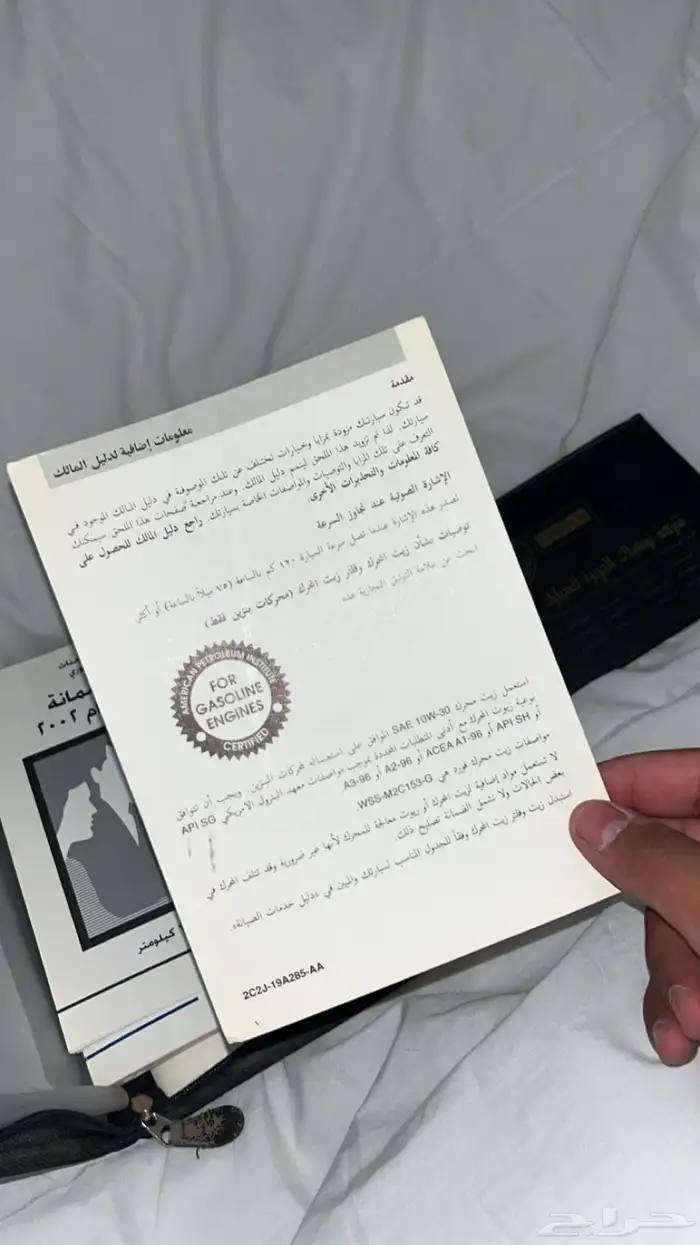 معلومات إضافية لدليل المالك
مقدمة
قد تكون سيارتك مزودة بمزايا وخيارات تختلف عن تلك الموصوفة في دليل المالك الموجود في
سيارتك. لذا تم تزويد هذا الملحق ليتمم دليل المالك. وعند مراجعة صفحات هذا الملحق سيمكنك
التعرف على تلك المزايا والتوصيات والمواصفات الخاصة بسيارتك. راجع دليل المالك للحصول على
كافة المعلومات والتحذيرات الأخرى.
الإشارة الصوتية عند تجاوز السرعة
تصدر هذه الإشارة عندما تصل سرعة السيارة ١٢٠ كم بالساعة (٧٥ ميلاً بالساعة) أو أكثر.
توصيات بشأن زيت المحرك وفلتر زيت المحرك (محركات بنزين فقط)
ابحث عن علامة التوثيق التجارية هذه.
AMERICAN PETROLEUM INSTITUTE
FOR
GASOLINE
ENGINES
CERTIFIED
استعمل زيت محرك SAE 10W-30 الموافق على استعماله لمحركات البنزين. ويجب أن تتوافق
نوعية زيوت المحرك مع أدنى المتطلبات المحددة بموجب مواصفات معهد البترول الامريكي API SG
أو API SH أو ACEA A1-96 أو A2-96 أو A3-96
مواصفات زيت محرك فورد هي WSS-M2C153-G.
لا تستعمل مواد إضافية لزيت المحرك أو زيوت معالجة للمحرك لأنها غير ضرورية وقد تتلف المحرك في
بعض الحالات ولا تشمل الضمانة تصليح ذلك.
استبدل زيت وفلتر زيت المحرك وفقاً للجدول المناسب لسيارتك والمبين في «دليل خدمات الصيانة».
2C2J-19A285-AA
١
٢٠٠٢
كيلومتر
حراج